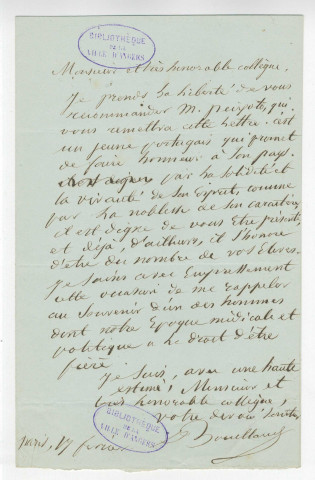 BIBLIOTHÈQUE
DE LA
VILLE D'ANGERS
Monsieur et très honorable collègue,
Je prends la liberté de vous
recommander M. peixoto, qui
vous remettra cette lettre. C'est
un jeune portugais qui promet
de faire honneur à son pays
par la solidité et
la vivacité de son esprit, comme
par la noblesse de son caractère,
il est digne de vous être présenté,
et déjà, d'ailleurs, il s'honore
d'être du nombre de vos Elèves.
Je saisis avec Empressement
cette occasion de me rappeler
au souvenir d'un des hommes
dont notre Epoque médicale et
politique a le droit d'être
fière.
Je suis, avec une haute
estime, Monsieur et
très honorable collègue,
votre dévoué serviteur
Bouillaud
paris, 17 février
BIBLIOTHÈQUE
DE LA
VILLE D'ANGERS